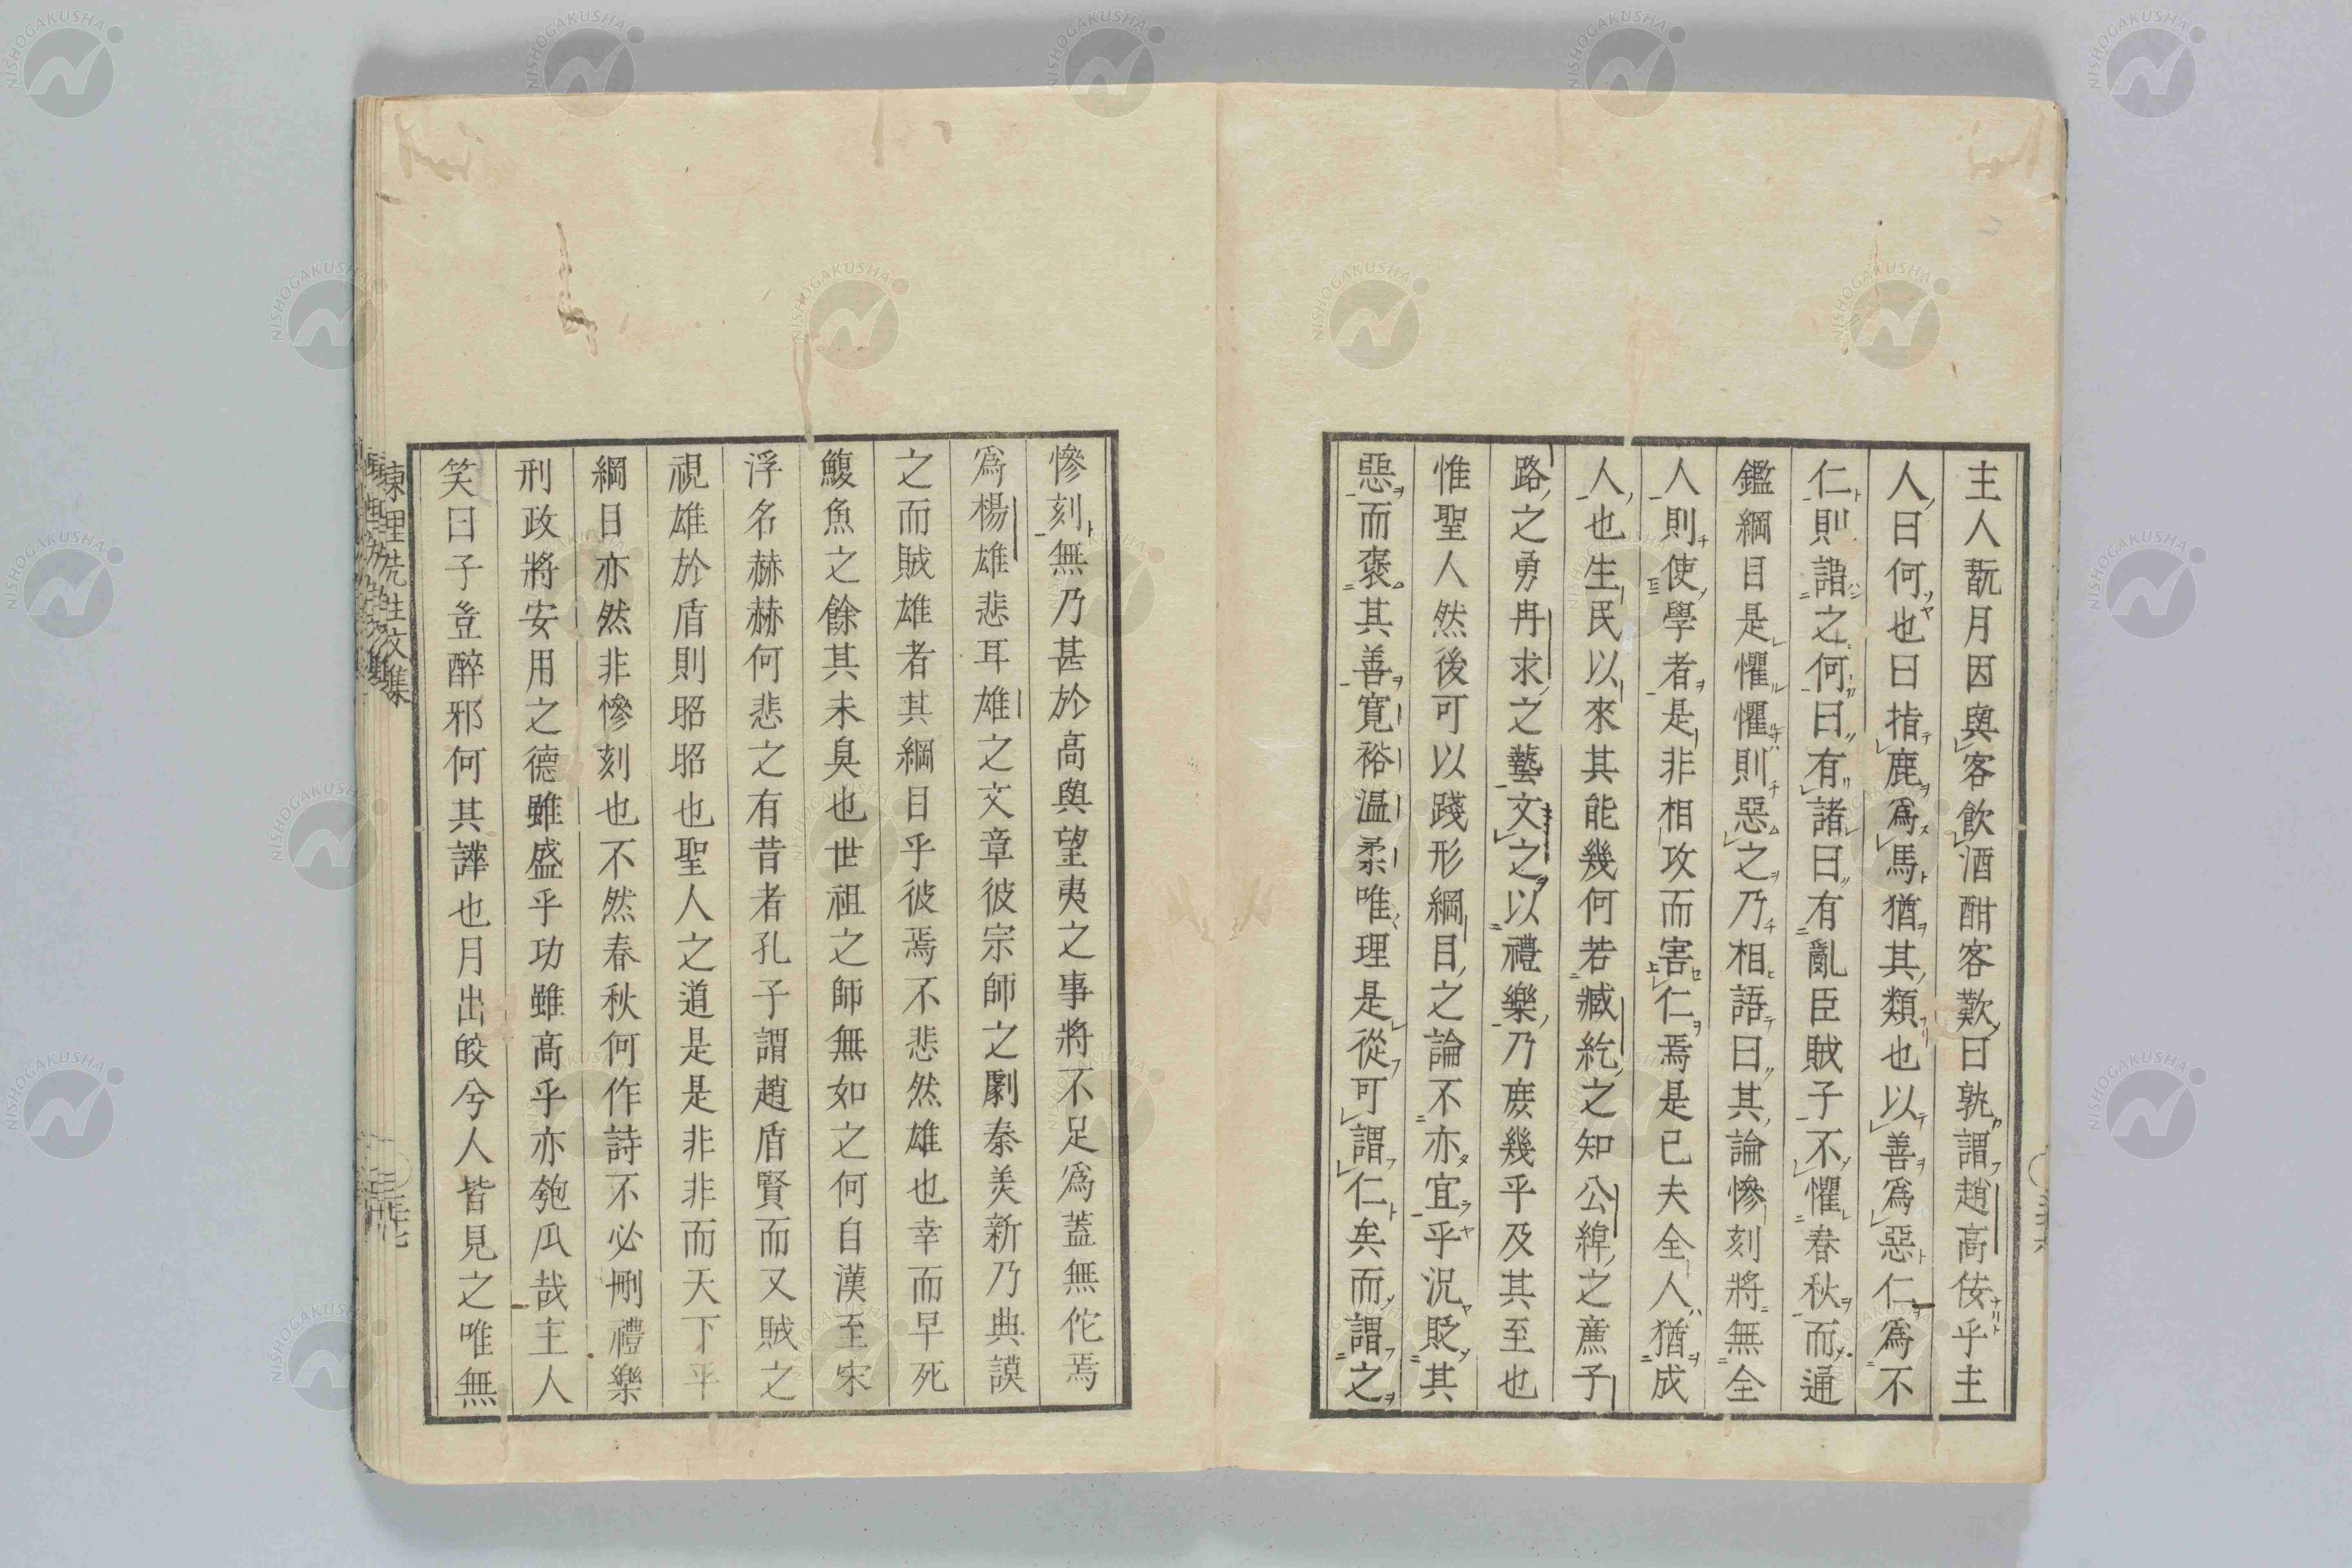 主人翫月因與客飲酒酣客歎曰孰謂趙高侫乎主
人曰何也曰指鹿爲馬猶其類也以善爲惡仁爲不
仁則謂之何曰有諸曰有亂臣賊子不懼春秋而通
鑑綱目是懼懼則惡之乃相語曰其論慘刻將無全
人則使學者是非相攻而害仁焉是已夫全人猶成
人也生民以來其能幾何若臧紇之知公綽之廉子
路之勇冉求之藝文之以禮樂乃庶幾乎及其至也
惟聖人然後可以踐形綱目之論不亦宜乎況貶其
惡而褒其善寛裕温柔唯理是從可謂仁矣而謂之
慘刻無乃甚於高與望夷之事將不足爲蓋無佗焉
爲楊雄悲耳雄之文章彼宗師之劇秦美新乃典謨
之而賊雄者其綱目乎彼焉不悲然雄也幸而早死
鰒魚之餘其未臭也世祖之師無如之何自漢至宋
浮名赫赫何悲之有昔者孔子謂趙盾賢而又賊之
視雄於盾則昭昭也聖人之道是是非非而天下平
綱目亦然非慘刻也不然春秋何作詩不必刪禮樂
刑政將安用之德雖盛乎功雖高乎亦匏瓜哉主人
笑曰子豈醉邪何其譁也月出皎兮人皆見之唯無
東里先生文集
三十七
NISHOGAKUSHA